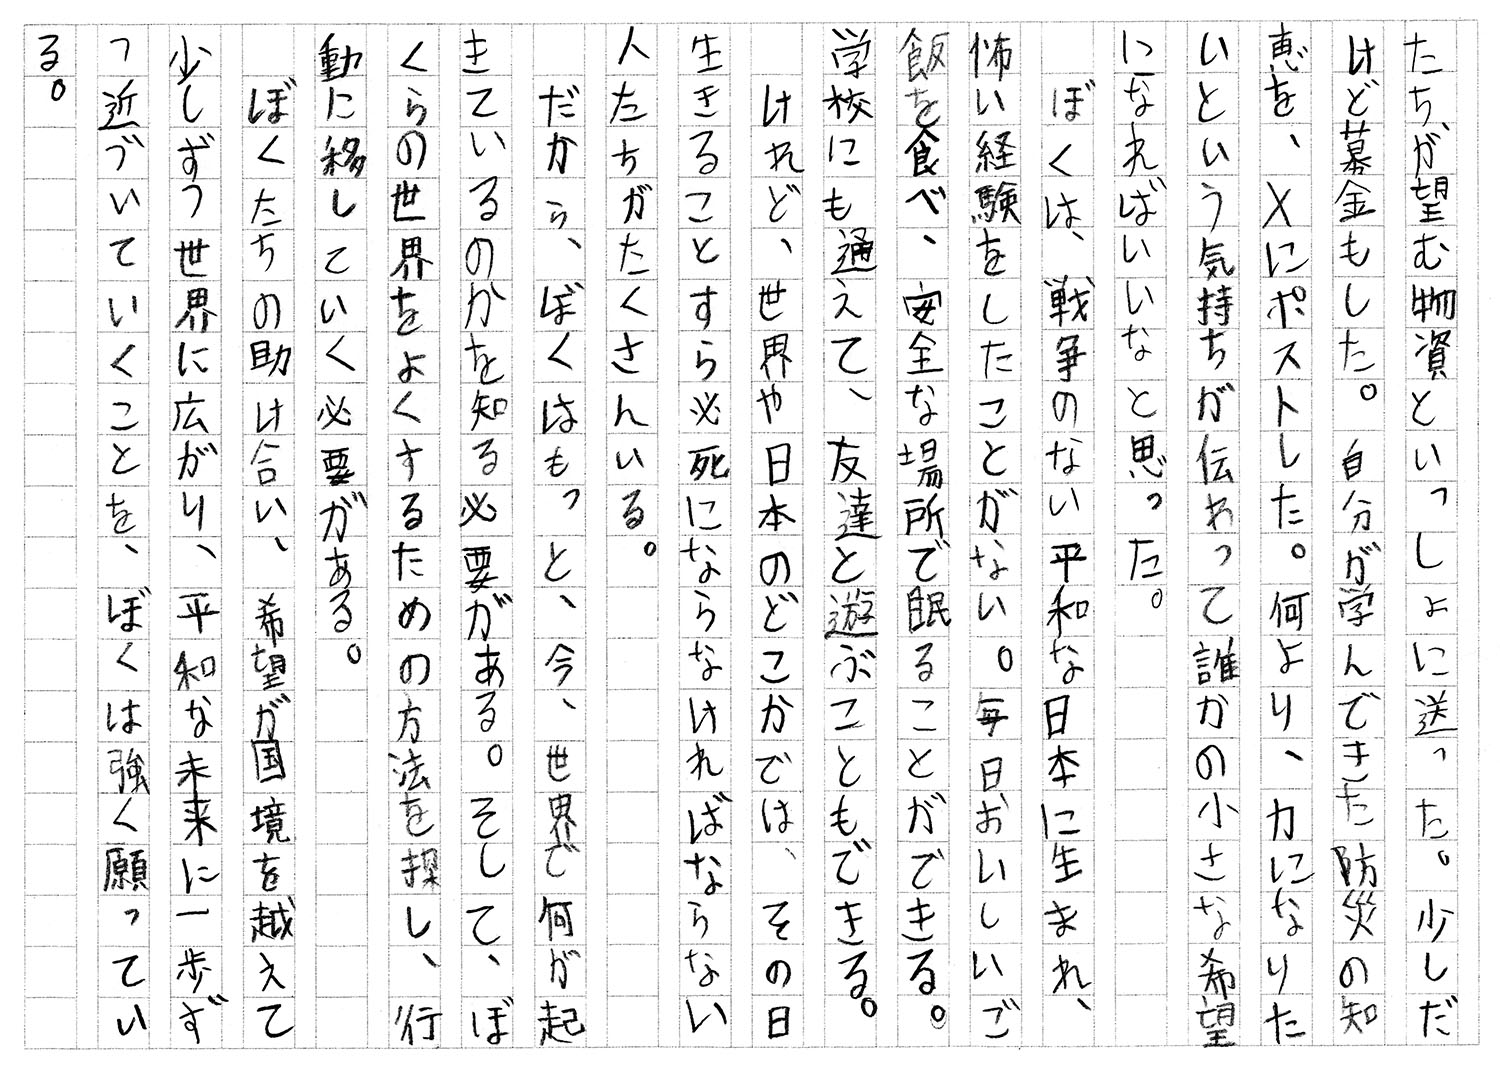 たちが望む物資といっしょに送った。少しだ
けど募金もした。自分が学んできた防災の知
恵を、Xにポストした。何より、力になりた
いという気持ちが伝わって誰かの小さな希望
になればいいなと思った。
ぼくは、戦争のない平和な日本に生まれ、
怖い経験をしたことがない。毎日おいしいご
飯を食べ、安全な場所で眠ることができる。
学校にも通えて、友達と遊ぶこともできる。
けれど、世界や日本のどこかでは、その日
生きることすら必死にならなければならない
人たちがたくさんいる。
だから、ぼくはもっと、今、世界で何が起
きているのかを知る必要がある。そして、ぼ
くらの世界をよくするための方法を探し、行
動に移していく必要がある。
ぼくたちの助け合い、希望が国境を越えて
少しずつ世界に広がり、平和な未来に一歩ず
つ近づいていくことを、ぼくは強く願ってい
る。